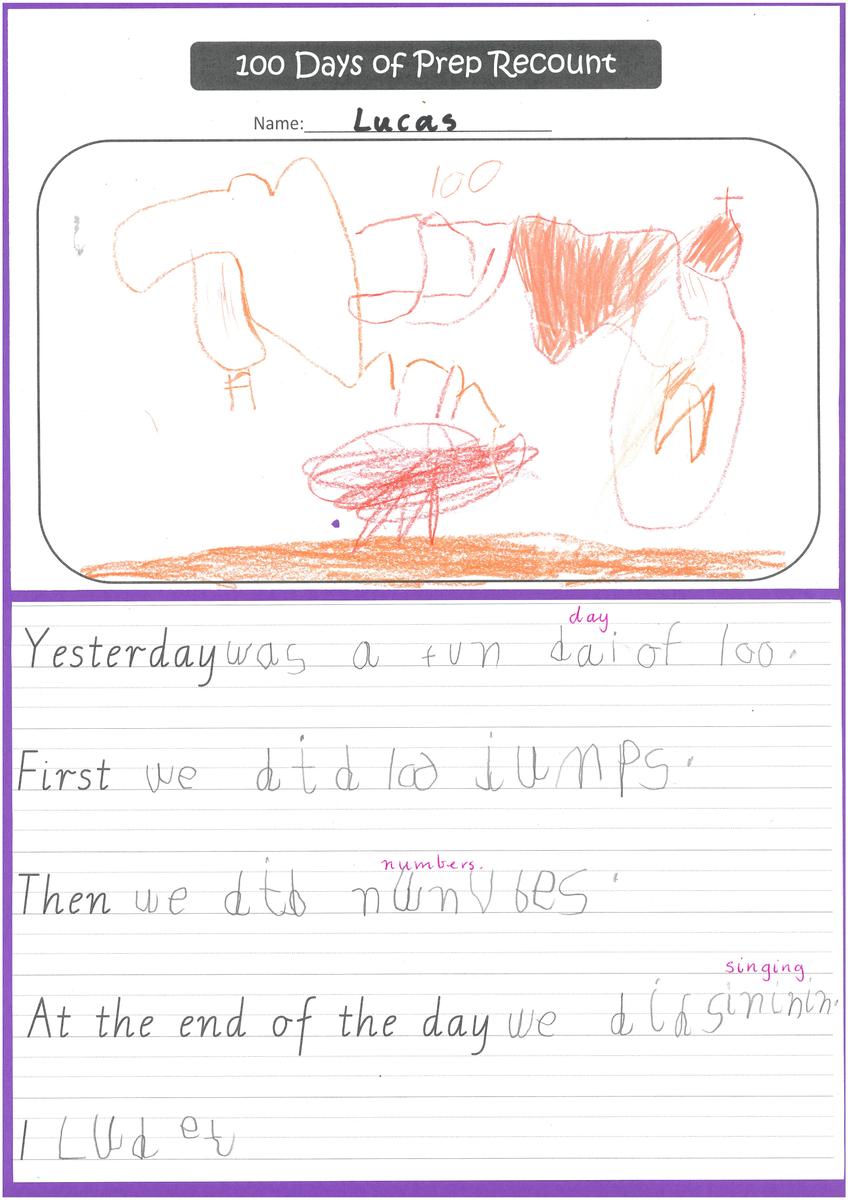 100 Days of Prep Recount
Name: Lucas
100
day
Yesterday was a fun dai of 100.
First we did 100 jumps.
numbers.
Then we did
singing
At the end of the day we did sininin.
I Lud et